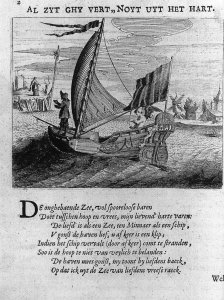 2
AL ZYT GHY VERT, NOYT UYT HET HART.
DE ongebaende Zee, vol spoorloose baren
Doet tusschen hoop en vrees, mijn bevend' harte varen:
De liefd' is als een Zee, een Minnaer als een schip,
V gonst de haven lief, u af keer is een klip;
Indien het schip vervalt (door af keer) comt te stranden,
Soo is de hoop te niet van veylich te belanden:
De haven uwes gonst, my toont by liefdens baeck,
Op dat ick uyt de Zee van liefdens vreese raeck.
Wel